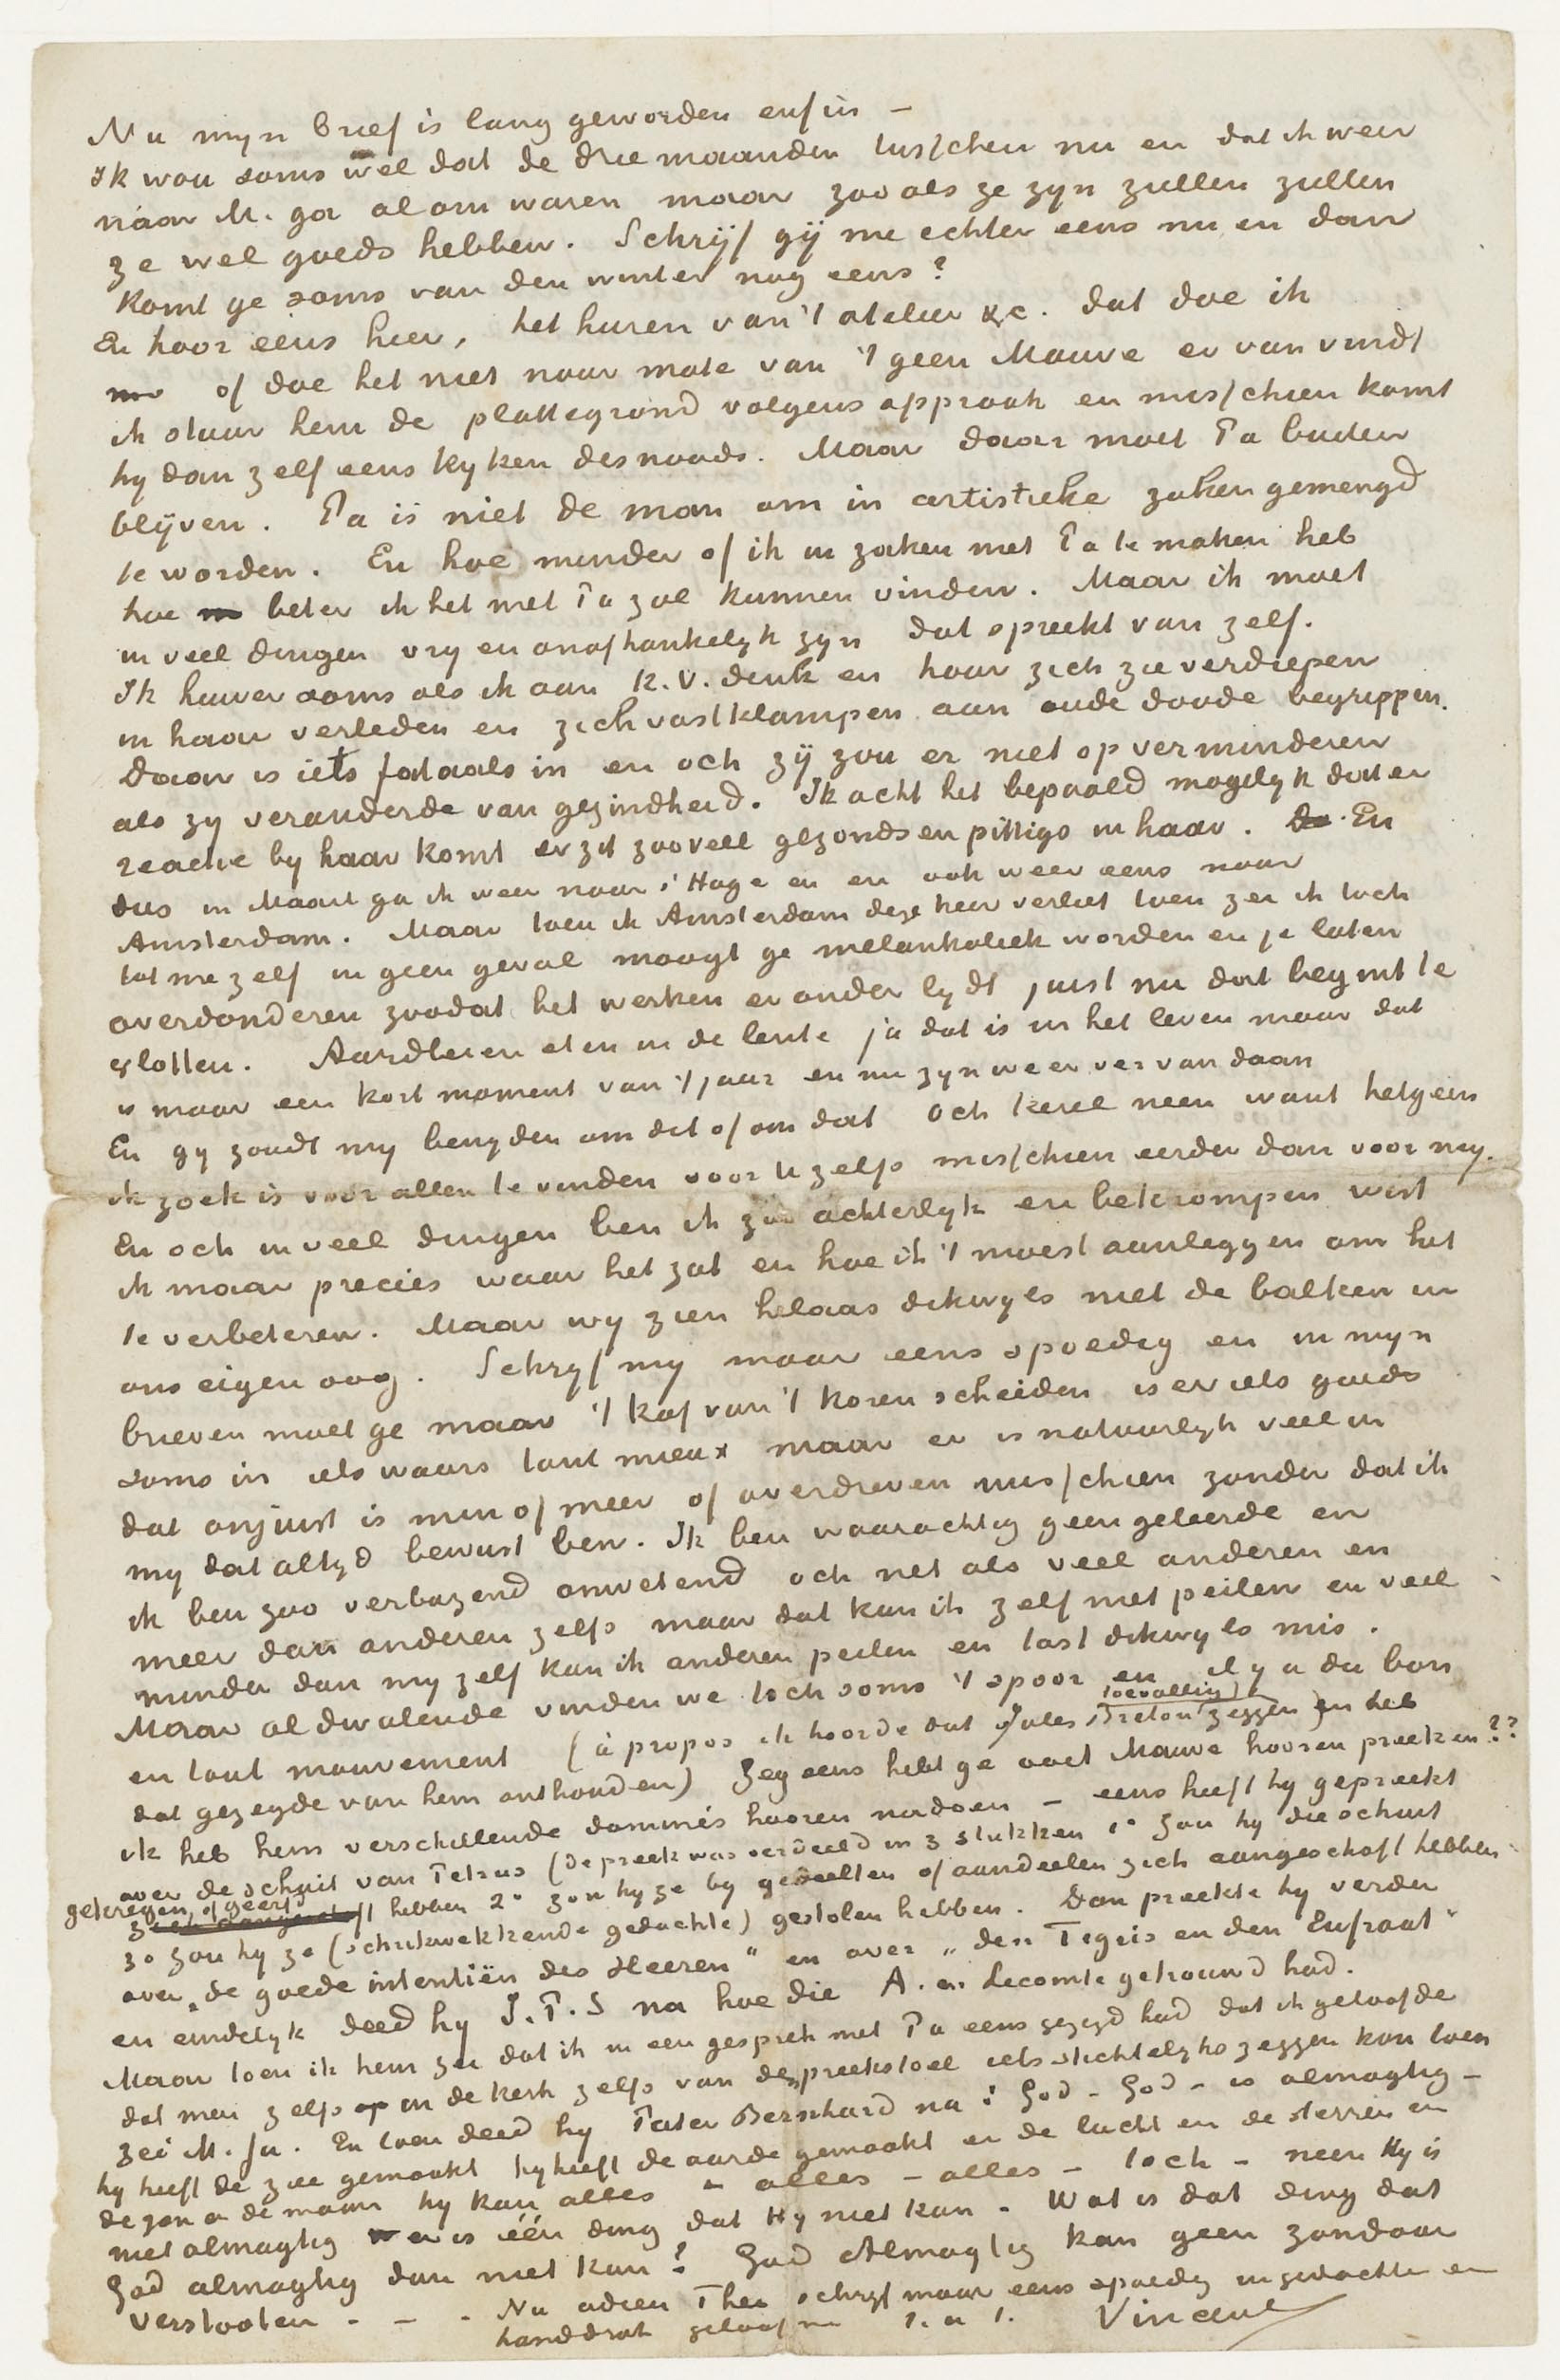 Nu mijn brief is lang geworden enfin —
Ik wou soms wel dat de drie maanden tusschen nu en dat ik weer
naar M. ga al om waren maar zooals ze zijn zullen zullen
ze wel goeds hebben. Schrijf gij me echter eens nu en dan
Komt ge soms van den winter nog eens?
En hoor eens hier, het huren van 't atelier &c. dat doe ik
of doe het niet naar mate van 't geen Mauve er van vindt
ik stuur hem de plattegrond volgens afspraak en misschien komt
hy dan zelf eens kyken desnoods. Maar daar moet Pa buiten
blijven. Pa is niet de man om in artistieke zaken gemengd
te worden. En hoe minder of ik in zaken met Pa te maken heb
hoe beter ik het met Pa zal kunnen vinden. Maar ik moet
in veel dingen vry en onafhankelyk zyn dat spreekt van zelf.
Ik huiver soms als ik aan K.V. denk en haar zich zie verdiepen
in haar verleden en zich vastklampen aan oude doode begrippen.
Daar is iets fataals in en och zij zou er niet op verminderen
als zy veranderde van gezindheid. Ik acht het bepaald mogelyk dat er
reactie by haar komt er zit zooveel gezonds en pittigs in haar. En
dus in Maart ga ik weer naar s'Hage en en ook weer eens naar
Amsterdam. Maar toen ik Amsterdam deze keer verliet toen zei ik toch
tot me zelf in geen geval moogt ge melankoliek worden en je laten
overdonderen zoodat het werken er onder lydt, juist nu dat begint te
vlotten. Aardbeien eten in de lente ja dat is in het leven maar dat
is maar een kort moment van 't jaar en nu zyn we er ver van daan
En gy zoudt my benyden om dit of om dat och kerel neen want hetgeen
ik zoek is voor allen te vinden voor U zelfs misschien eerder dan voor my.
En och in veel dingen ben ik zoo achterlyk en bekrompen wist
ik maar precies waar het zat en hoe ik 't moest aanleggen om het
te verbeteren. Maar wy zien helaas dikwyls niet de balken in
ons eigen oog. Schryf my maar eens spoedig en in myn
brieven moet ge maar 't kaf van 't koren scheiden is er iets goeds
soms in iets waars tant mieux maar er is natuurlyk veel in
dat onjuist is min of meer of overdreven misschien zonder dat ik
my dat altyd bewust ben. Ik ben waarachtig geen geleerde en
ik ben zoo verbazend onwetend och net als veel anderen en
meer dan anderen zelfs maar dat kan ik zelf niet peilen en veel
minder dan my zelf kan ik anderen peilen en tast dikwyls mis.
Maar al dwalende vinden we toch soms 't spoor en il y a du bon
en tout mouvement (à propos ik hoorde dat Jules Breton toevallig zeggen en heb
dat gezegde van hem onthouden) Zeg eens hebt ge ooit Mauve hooren preeken??
ik heb hem verschillende dominés hooren nadoen — eens heeft hy gepreekt
over de schuit van Petrus (de preek was verdeeld in 3 stukken 1° Zou hy die schuit
gekregen of geerfd hebben 2° zou hy ze by gedeelten of aandeelen zich aangeschaft hebben
3° zou hy ze (schrikwekkende gedachte) gestolen hebben. Dan preekte hy verder
over „de goede intentiën des Heeren" en over „den Tigris en den Eufraat"
en eindelyk deed hy J.P.S na hoe die A. en Lecomte getrouwd had.
Maar toen ik hem zei dat ik in een gesprek met Pa eens gezegd had dat ik geloofde
dat men zelfs in de kerk zelfs van den preekstoel iets stichtelyks zeggen kon toen
zei M. Ja. En toen deed hy Pater Bernhard na: God – God – is almagtig –
hy heeft de zee gemaakt hy heeft de aarde gemaakt en de lucht en de sterren en
de zon en de maan hy kan alles – alles – alles – toch – neen Hy is
niet almagtig er is één ding dat Hy niet kan – Wat is dat ding dat
God almagtig dan niet kan? God Almagtig kan geen zondaar
verstooten – – – Nu adieu Theo schryf maar eens spoedig in gedachten een
handdruk geloof me t. à t. Vincent